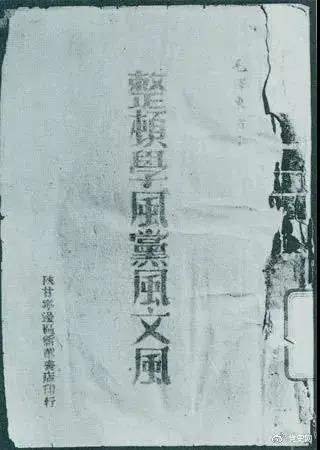 毛澤東著
整頓學風黨風文風
陝甘寧邊區新華書店印行
党史网